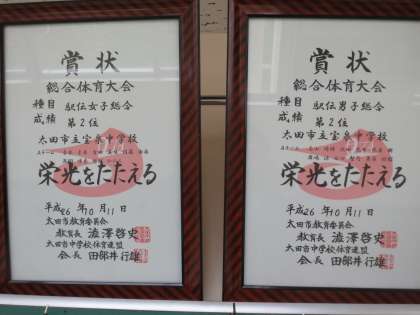 賞状
総合体育大会
種目 駅伝女子総合
成績 第2位
太田市立宝泉中学校
栄光をたたえる
平成26年10月11日
太田市教育委員会
教育長 澁澤啓史
太田市中学校体育連盟
会長 田部井行雄
賞状
総合体育大会
種目 駅伝男子総合
成績 第2位
太田市立宝泉中学校
栄光をたたえる
平成26年10月11日
太田市教育委員会
教育長 澁澤啓史
太田市中学校体育連盟
会長 田部井行雄